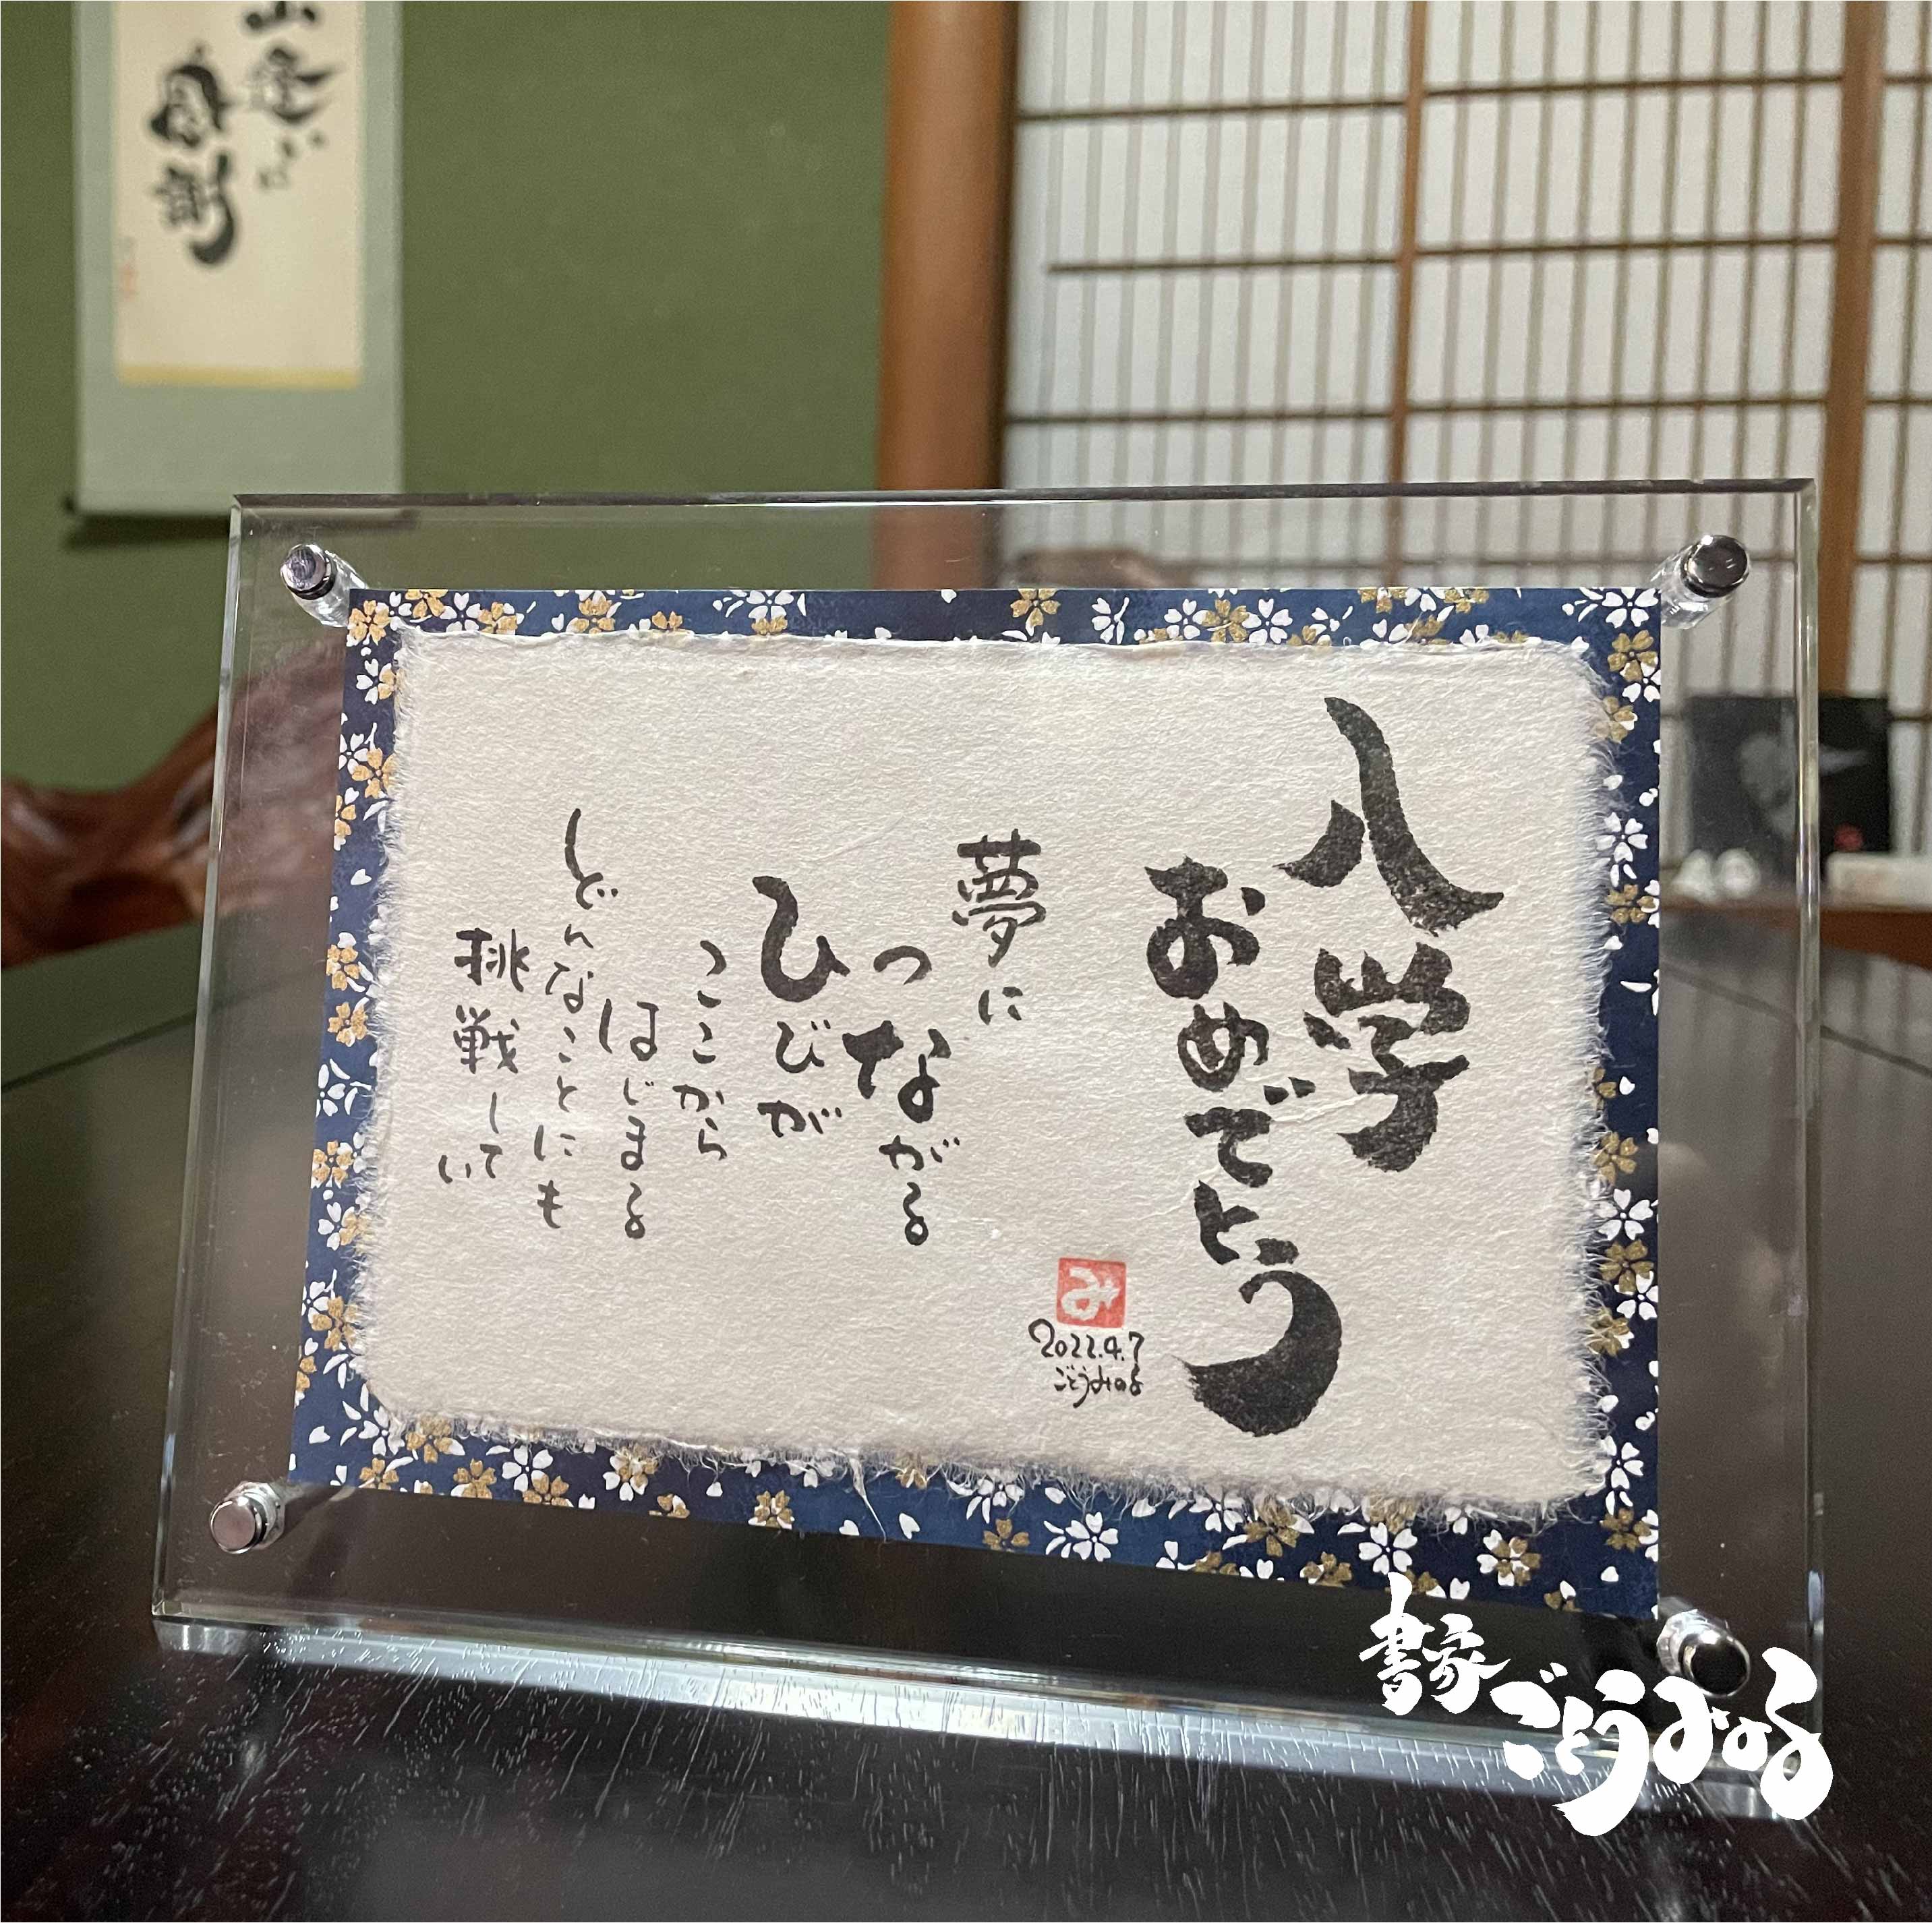 出逢いに
感謝
入学
おめでとう
夢に
つながる
ひびが
ここから
はじまる
どんなことにも
挑戦して
い
み
2022.4.7
ごとうみのる
書家
ごとうみのる